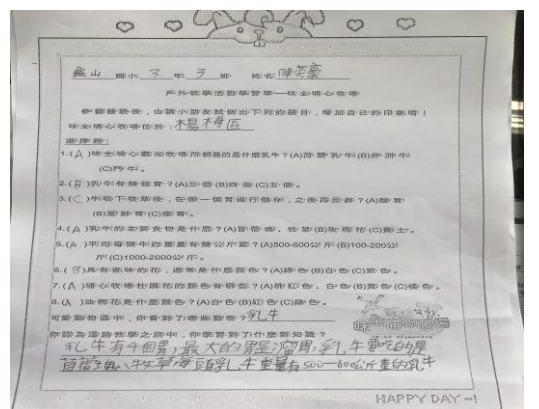 龜山 國小 3 年 3 班 姓名 陳奕豪
戶外教學活動學習單-味全埔心牧場
參觀體驗後,也請小朋友試做出下列的題目,增加自己的印象唷!
味全埔心牧場位於:楊梅區
選擇題:
1.(A)味全埔心觀光牧場所飼養的是什麼乳牛?(A)荷蘭乳牛(B)非洲牛
(C)鬥牛。
2.(B)乳牛有幾個胃?(A)三個(B)四個(C)五個。
3.(C)牛吃下牧草後,在哪一個胃進行儲存,之後再反芻?(A)皺胃
(B)重瓣胃(C)瘤胃。
4.(A)乳牛的主要食物是什麼?(A)苜蓿塊、牧草(B)玫瑰花(C)黃土。
5.(A)平均每隻牛的重量有幾公斤重?(A)500-600公斤(B)100-200公
斤(C)1000-2000公斤。
6.(B)具有香味的花,通常是什麼顏色?(A)綠色(B)白色(C)紫色。
7.(A)埔心牧場杜鵑花的顏色有哪些?(A)粉紅、白色(B)黃色(C)橘色。
8.(A)油桐花是什麼顏色?(A)白色(B)紅色(C)橘色。
可愛動物區中,你看到了哪些動物?乳牛
你認為這趟教學之旅中,你學習到了什麼新知識?
乳牛有4個胃,最大的胃是瘤胃,乳牛要吃的是
苜蓿塊、牧草每頭乳牛重量有500—600公斤重的乳牛
HAPPY DAY